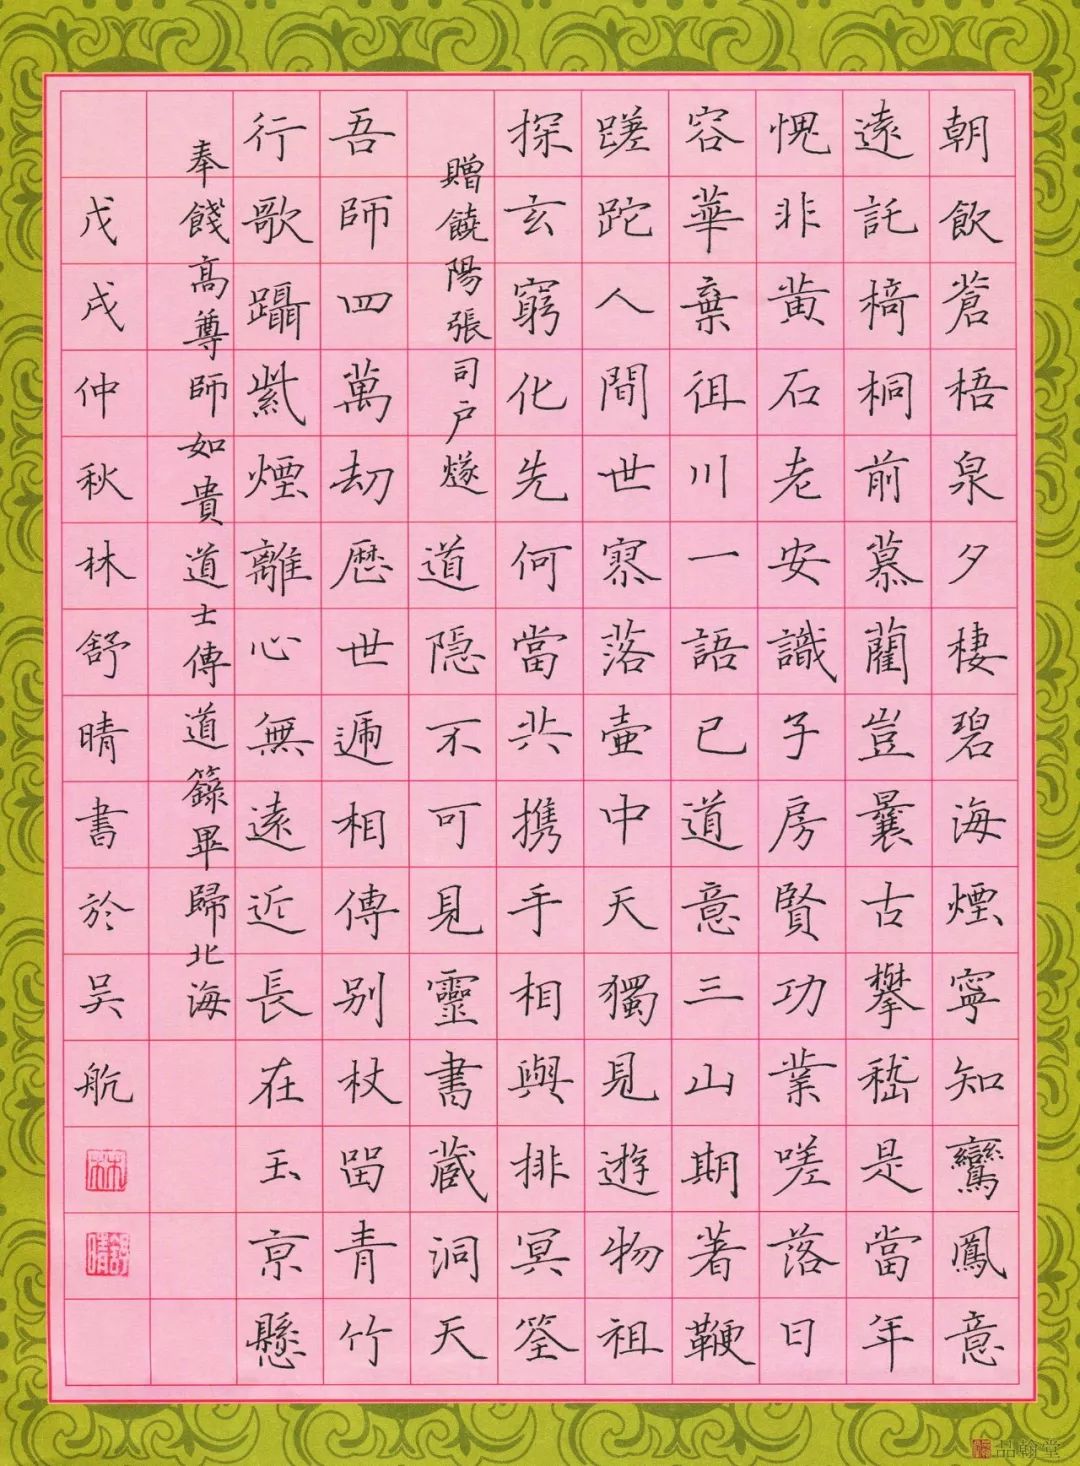 朝飲蒼梧泉夕棲碧海煙寧知鸞鳳意
遠託椅桐前慕藺豈曩古攀嵇是當年
愧非黄石老安識子房賢功業嗟落日
容華棄徂川一語已道意三山期著鞭
蹉跎人間世寥落壺中天獨見遊物祖
探玄窮化先何當共携手相與排冥筌
贈饒陽張司户燧
道隐不可見靈書藏洞天
吾師四萬劫歷世遞相傳别杖留青竹
行歌躡紫煙離心無遠近長在玉京懸
奉餞高尊師如貴道士傳道籙畢歸北海
戊戌仲秋林舒晴書於吴航
林
舒晴
品翰堂